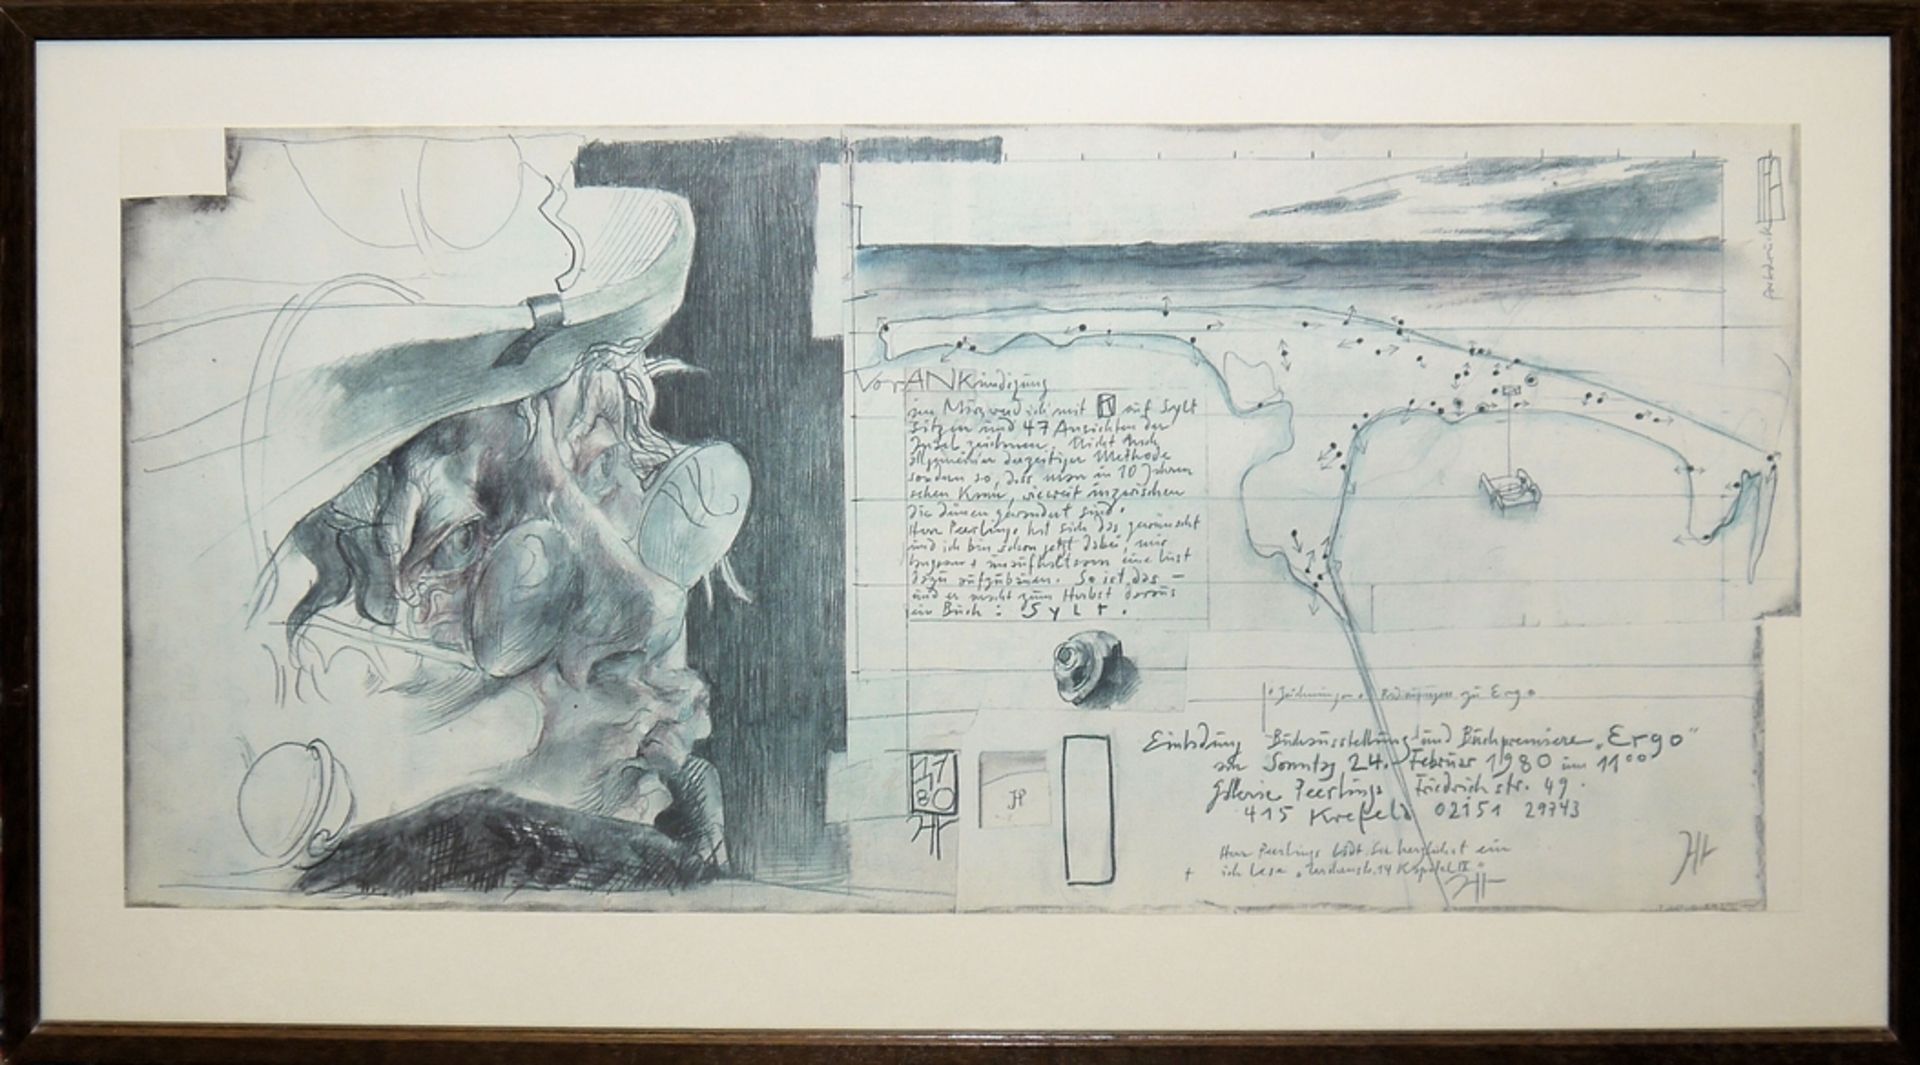 VorANKündigung
im März werd ich mit auf Sylt
sitzen und 47 Ansichten der
Insel zeichnen. Nicht nach
allgemeiner derzeitiger Methode
sondern so, dass man in 10 Jahren
sehen kann, wieweit inzwischen
die Dünen gewandert sind.
Herr Peerlings hat sich das gewünscht
und ich bin schon jetzt dabei, mir
langsam + unaufhaltsam eine Lust
dazu aufzubauen. So ist das –
und er macht zum Herbst daraus
ein Buch : Sylt.
Zeichnungen Radierungen zu Ergo
Einladung Buchausstellung und Buchpremiere „Ergo"
am Sonntag 24. Februar 1980 um 11 00
Galerie Peerlings Friedrichstr. 49.
415 Krefeld 02151 29743
Herr Peerlings lädt Sie herzlichst ein
+ ich lese Kapitel IX
17
1
80
JP